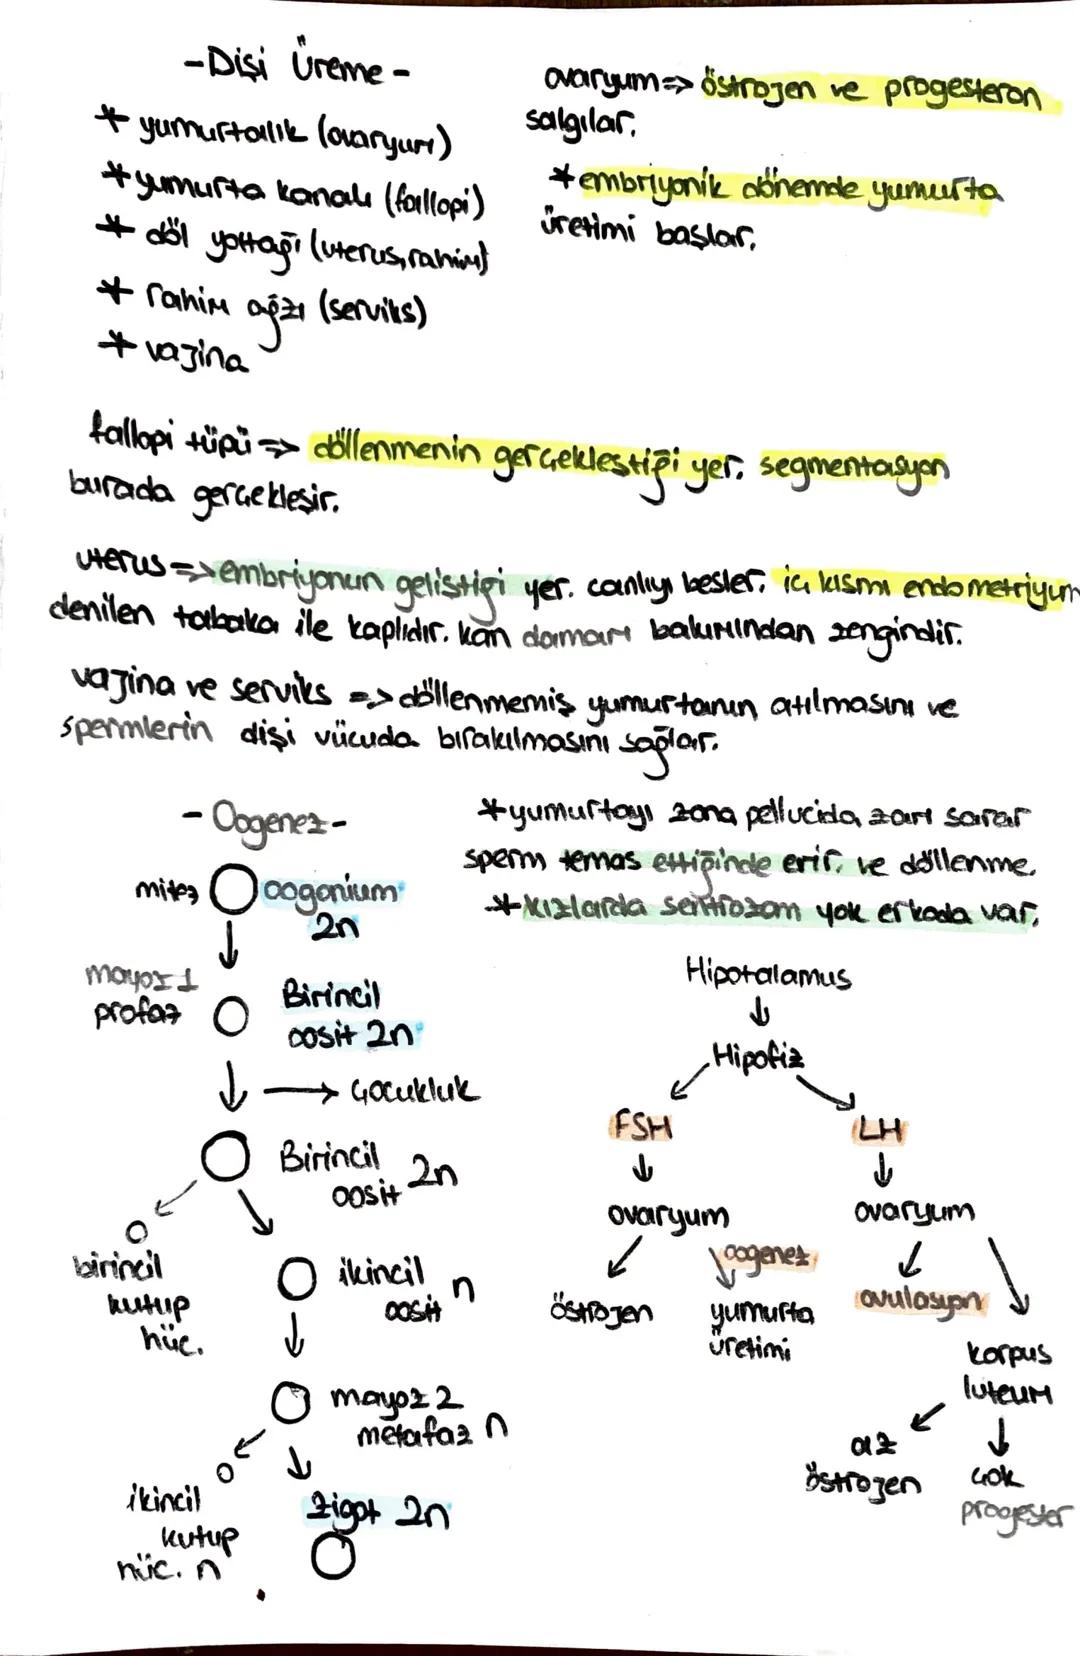 -Dişi Üreme-
* yumurtalık (ovaryum)
* yumurta kanalı (fallopi)
* döl yatağı (uterus, rahim)
* rahim ağzı (serviks)
* vajina
ovaryum => östrojen ve progesteron
salgılar.
* embriyonik dönemde yumurta
üretimi başlar.
fallopi tüpü => döllenmenin gerçekleştiği yer. segmentasyon
burada gerçekleşir.
uterus => embriyonun geliştiği yer. canlıyı besler. iç kısmı endometriyum
denilen tabaka ile kaplıdır. kan damarı bakımından zengindir.
vajina ve serviks => döllenmemiş yumurtanın atılmasını ve
spermlerin dişi vücuda bırakılmasını sağlar.
- Oogenez -
mitoz oogonium
2n
mayoz 1
profaz
Birincil
oosit 2n
↓ → çocukluk
Birincil
oosit 2n
birincil
kutup
hüc.
ikincil
oosit n
mayoz 2
metafaz n
ikincil
kutup
hüc. n
zigot 2n
* yumurtayı zona pellucida zarı sarar
sperm temas ettiğinde erir. ve döllenme.
* kızlarda sentrozom yok erkekde var.
Hipotalamus
↓
Hipofiz
FSH
↓
ovaryum
östrojen
oogenez
yumurta
üretimi
LH
↓
ovaryum
ovulasyon
korpus
luteum
az
östrojen
çok
progester